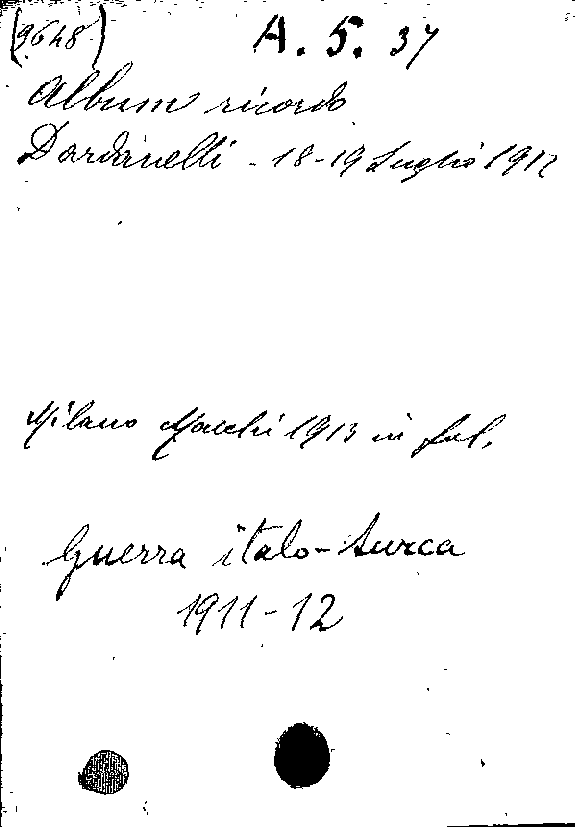 (9648) A. 5. 37
Album ricordo
Dardanelli - 18-19 Luglio 1912
Milano Macchi 1913 in fol.
Guerra italo-turca
1911-12